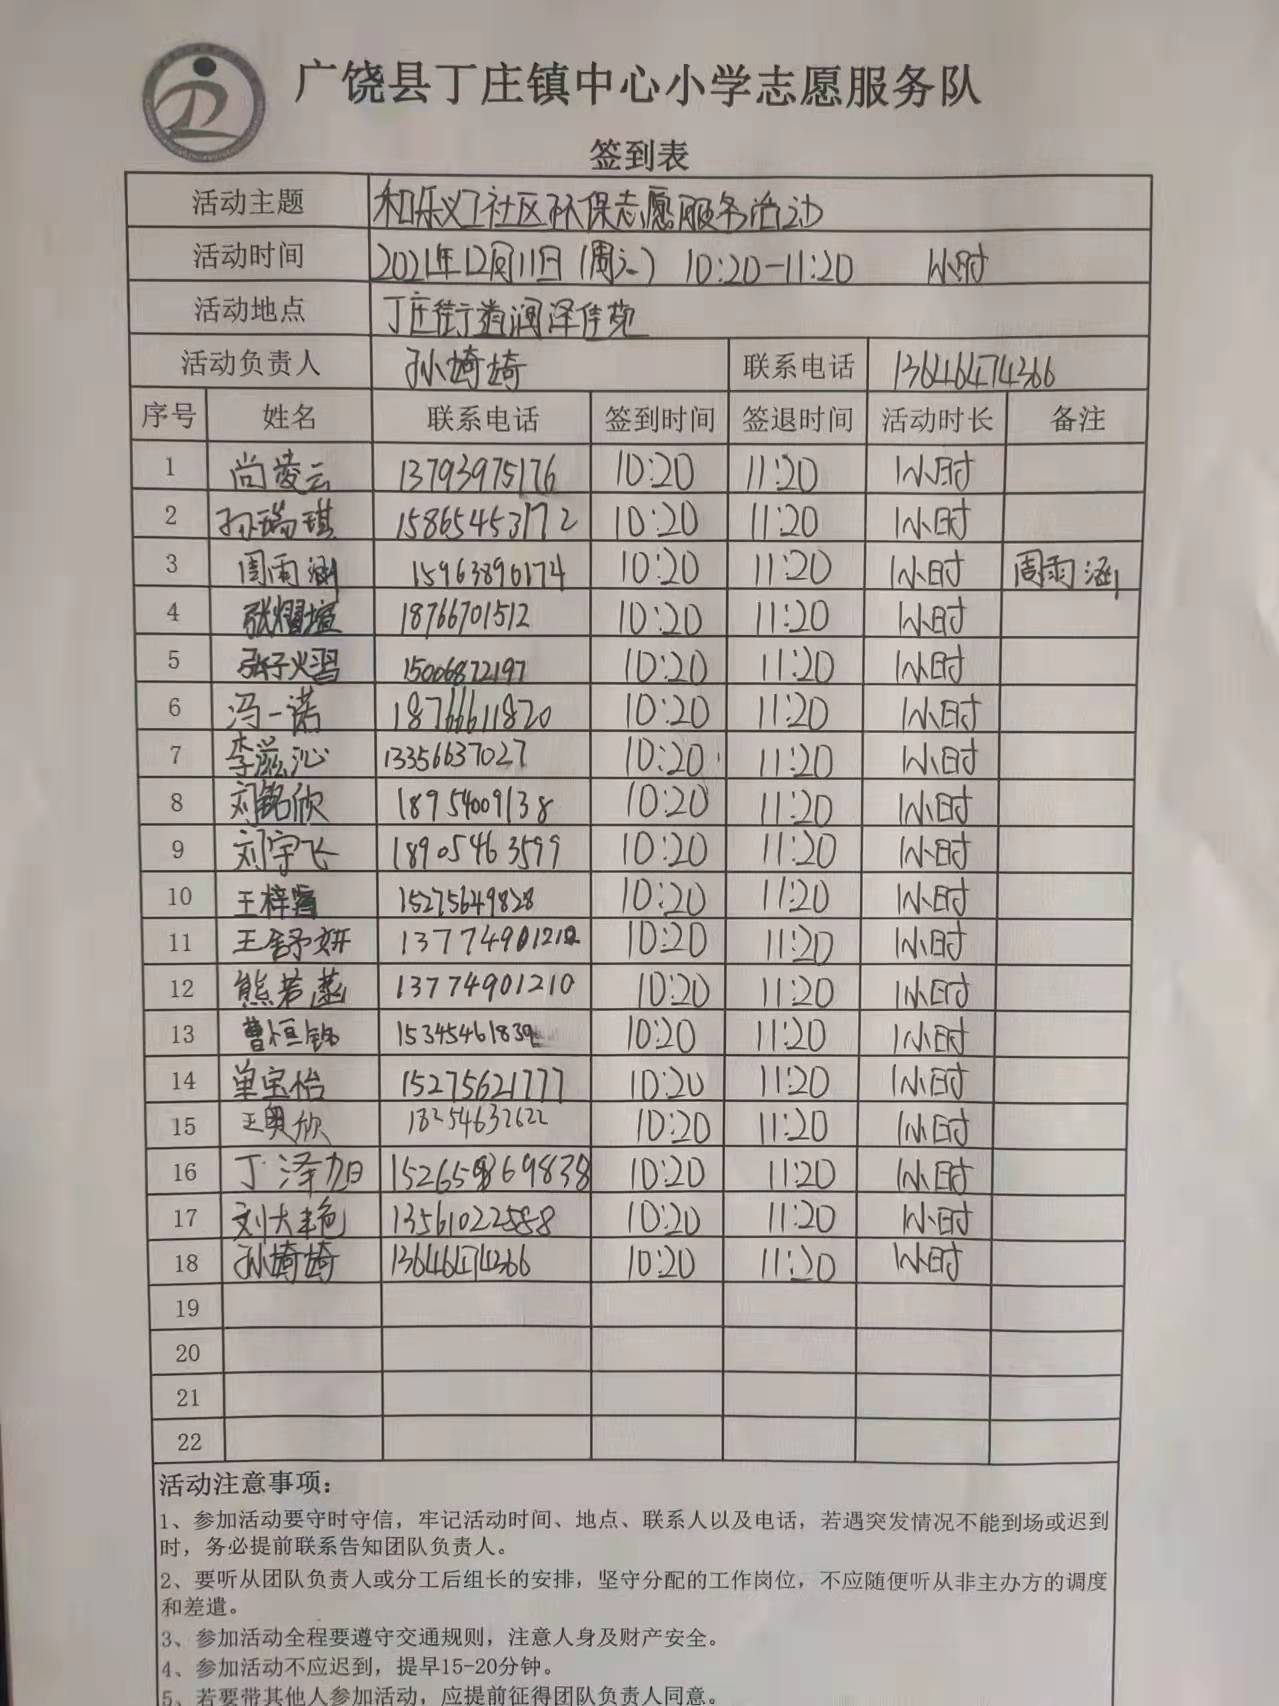 广饶县丁庄镇中心小学志愿服务队
签到表
活动主题 和乐义工社区环保志愿服务活动
活动时间 2021年12月11日(周六) 10:20-11:20 1小时
活动地点 丁庄街道润泽佳苑
活动负责人 孙埼埼 联系电话 13646474366
序号 姓名 联系电话 签到时间 签退时间 活动时长 备注
1 尚凌云 13793975176 10:20 11:20 1小时
2 孙瑞琪 15865453172 10:20 11:20 1小时
3 周雨涵 15963890174 10:20 11:20 1小时 周雨涵
4 张熠萱 18766701512 10:20 11:20 1小时
5 张子熠 15006872197 10:20 11:20 1小时
6 冯一诺 18766611820 10:20 11:20 1小时
7 李滋沁 13356637027 10:20 11:20 1小时
8 刘铭欣 18954009138 10:20 11:20 1小时
9 刘宇飞 18905463599 10:20 11:20 1小时
10 王梓 15275649828 10:20 11:20 1小时
11 王舒妍 13774901210 10:20 11:20 1小时
12 熊若菡 13774901210 10:20 11:20 1小时
13 曹恒铭 15345461839 10:20 11:20 1小时
14 单宝怡 15275621777 10:20 11:20 1小时
15 王奥欣 18254632622 10:20 11:20 1小时
16 丁泽旭 10:20 11:20 1小时
17 刘大艳 13561022588 10:20 11:20 1小时
18 孙埼埼 13646474366 10:20 11:20 1小时
19
20
21
22
活动注意事项:
1、参加活动要守时守信，牢记活动时间、地点、联系人以及电话，若遇突发情况不能到场或迟到
时，务必提前联系告知团队负责人。
2、要听从团队负责人或分工后组长的安排，坚守分配的工作岗位，不应随便听从非主办方的调度
和差遣。
3、参加活动全程要遵守交通规则，注意人身及财产安全。
4、参加活动不应迟到，提早15-20分钟。
5、若要带其他人参加活动，应提前征得团队负责人同意。